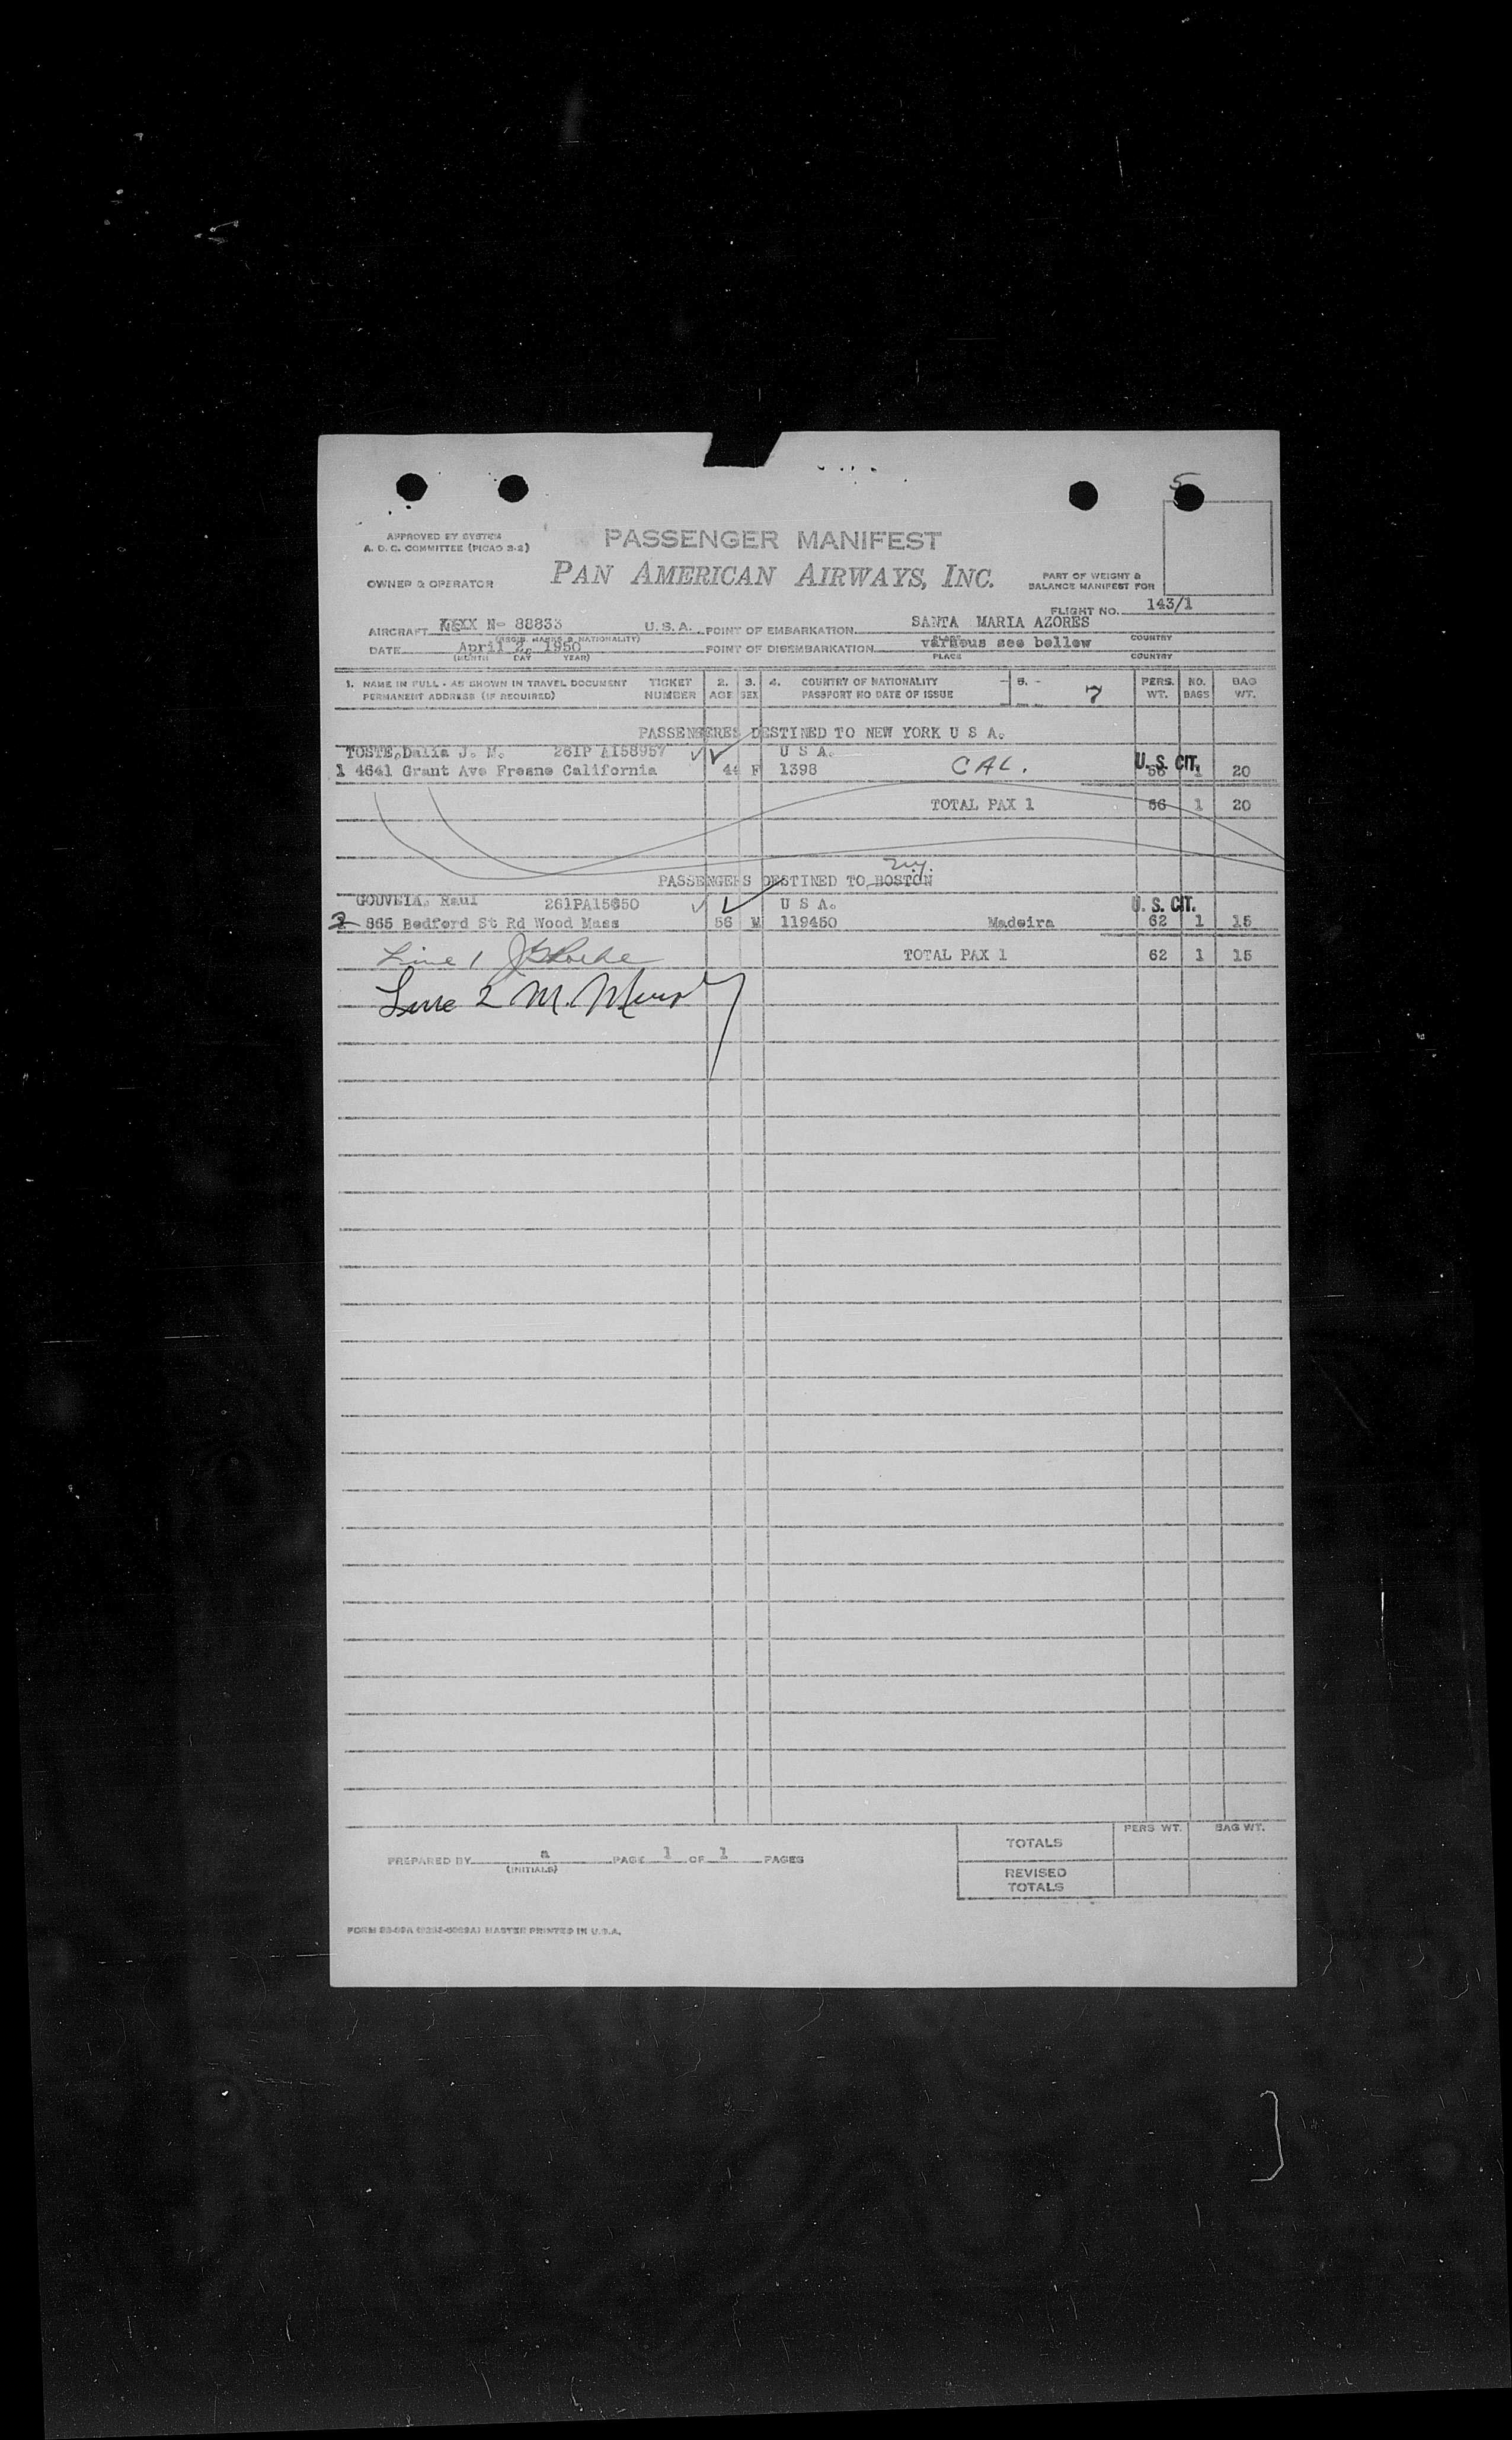 5
APPROVED BY SYSTEM
A. D. C. COMMITTEE (PICAO 3-2)
PASSENGER MANIFEST
OWNER & OPERATOR
PAN AMERICAN AIRWAYS, INC.
PART OF WEIGHT &
BALANCE MANIFEST FOR
FLIGHT NO. 143/1
AIRCRAFT N- 88833 U.S.A. POINT OF EMBARKATION SANTA MARIA AZORES
(REGIS. MARKS & NATIONALITY) PLACE COUNTRY
DATE April 2, 1950 POINT OF DISEMBARKATION various see bellow
(MONTH DAY YEAR) PLACE COUNTRY
1. NAME IN FULL - AS SHOWN IN TRAVEL DOCUMENT TICKET 2. 3. 4. COUNTRY OF NATIONALITY 5. PERS. NO. BAG
PERMANENT ADDRESS (IF REQUIRED) NUMBER AGE SEX PASSPORT NO DATE OF ISSUE 7 WT. BAGS WT.
PASSENGERES DESTINED TO NEW YORK U S A.
TOSTE, Dalia J. M. 261P A158957 U S A. U. S. CIT.
1 4641 Grant Ave Fresno California 44 F 1398 CAL. 56 1 20
TOTAL PAX 1 56 1 20
N.Y.
PASSENGERS DESTINED TO BOSTON
GOUVEIA, Raul 261PA15650 U S A. U. S. CIT.
2 865 Bedford St Rd Wood Mass 56 M 119450 Madeira 62 1 15
Line 1 TOTAL PAX 1 62 1 15
Line 2 M. Murphy
PERS WT. BAG WT.
TOTALS
PREPARED BY a PAGE 1 OF 1 PAGES
(INITIALS)
REVISED
TOTALS
MASTER PRINTED IN U.S.A.